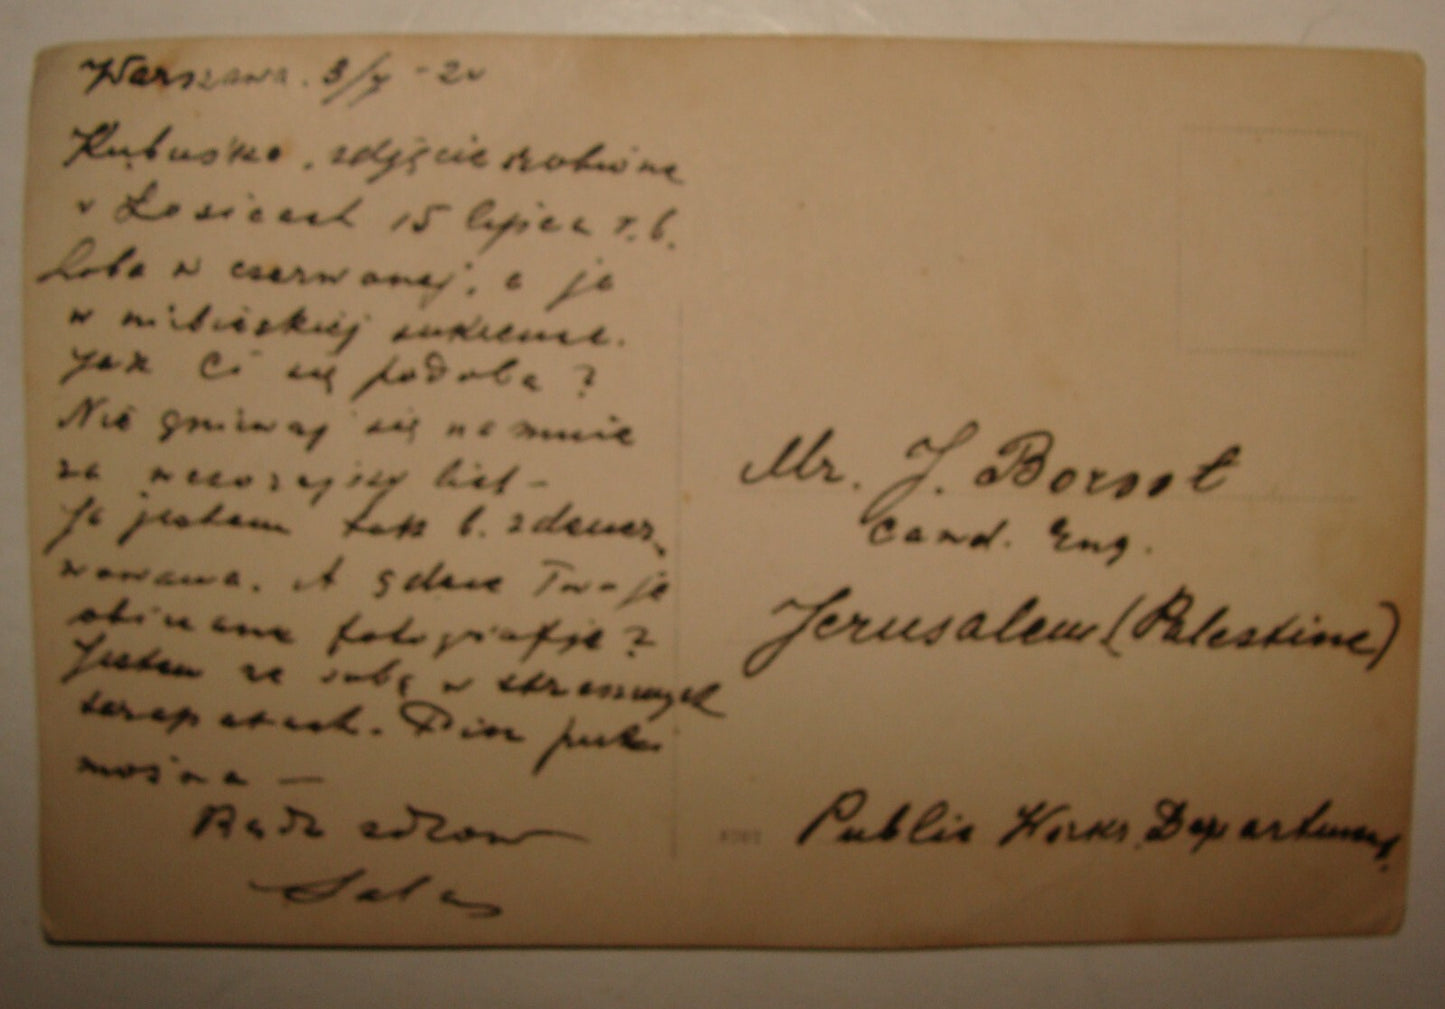 Warszawa. 3/X - 2
Kubuśko, zdjęcie zrobione
w Łosicach 15 lipca r.b.
Loba w czerwonej, a ja
w niebieskiej sukience.
Jak Ci się podoba?
Nie gniewaj się na mnie
za wczorajszy list –
Ja jestem tak b. zdener-
wowana. A gdzie Twoje
obiecane fotografje?
Jestem ze sobą w strasznych
tarapatach. Pisz
można –
Bądź zdrów
Sala
Mr. J. Bornot
Cand. Eng.
Jerusalem (Palestine)
Public Works Department.